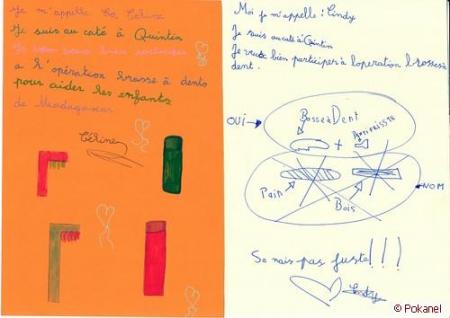 Je m'appelle Céline
Je suis au caté à Quintin
Je veux bien participer
a l'opération brosse à dents
pour aider les enfants
de Madagascar
Céline
Moi je m'appelle : Cindy
Je suis au caté à Quintin
Je veux bien participer à l'operation brosses à
dent.
OUI
BosseàDent
+
Pain
Bois
NOM
Se nais pas juste!!!
Cindy
© Pokanel